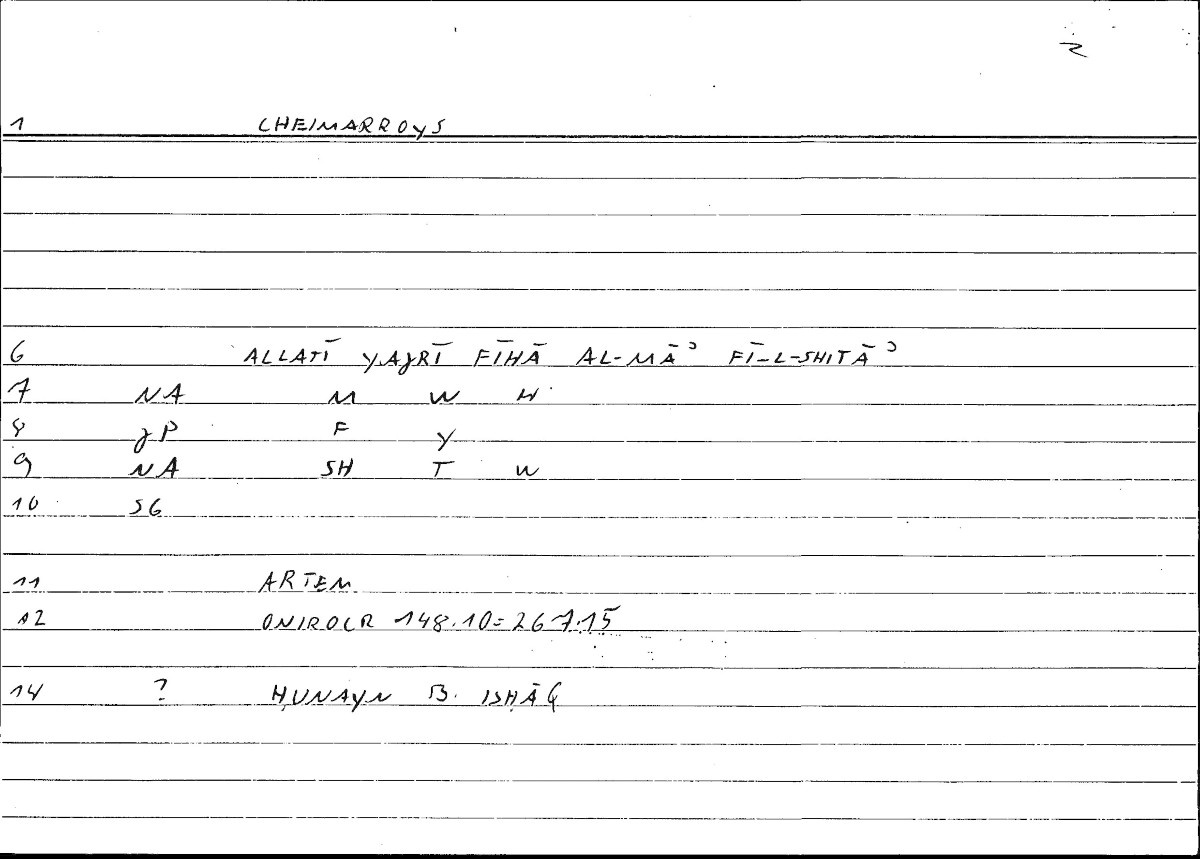 2
1 CHEIMARROYS
6 ALLATĪ YAJRĪ FĪHĀ AL-MĀʾ FĪ-L-SHITĀʾ
7 NA M W H
8 JP F Y
9 NA SH T W
10 SG
11 ARTEM
12 ONIROCR 148.10=267.15
14 ? ḤUNAYN B. ISḤĀQ